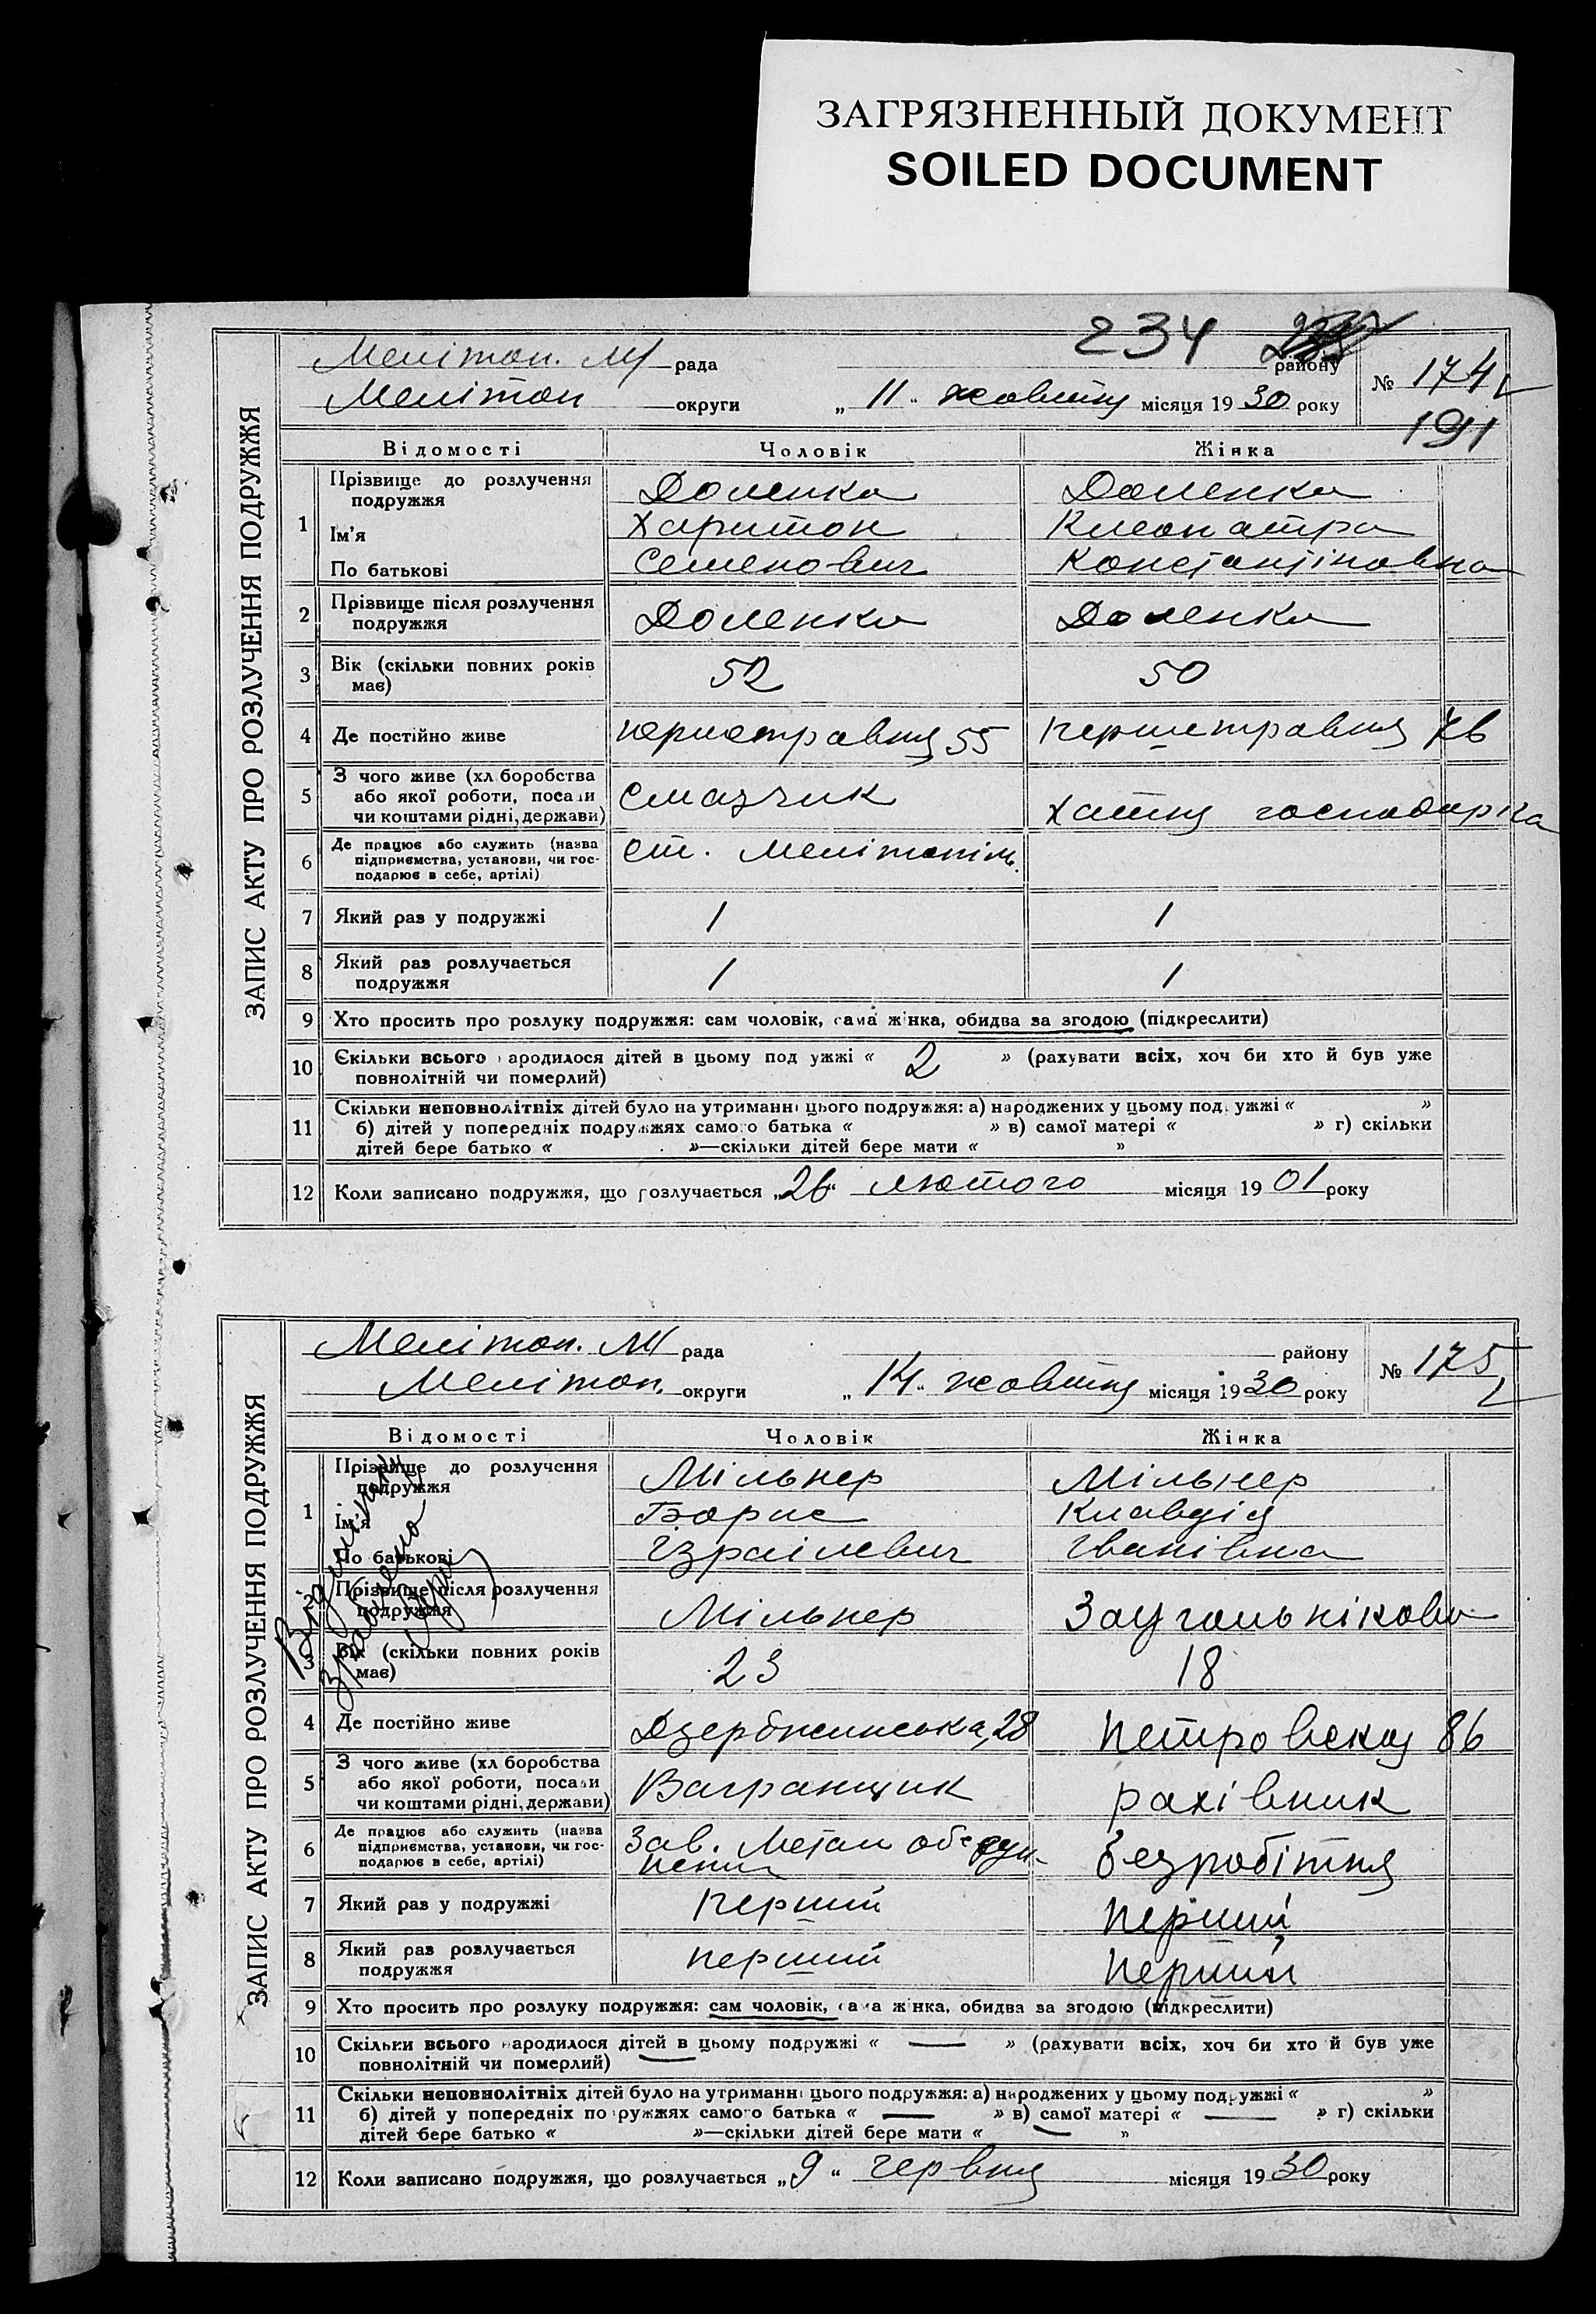 ЗАГРЯЗНЕННЫЙ ДОКУМЕНТ
SOILED DOCUMENT
234
ЗАПИС АКТУ ПРО РОЗЛУЧЕННЯ ПОДРУЖЖЯ
Мелітоп. М/ рада району
Мелітоп округи „ 11 “ жовтня місяця 1930 року
№ 174
191
Відомості Чоловік Жінка
1 Прізвище до розлучення подружжя Доленко Доленко
Ім'я Харитон Клеопатра
По батькові Семенович Константіновна
2 Прізвище після розлучення подружжя Доленко Доленко
3 Вік (скільки повних років має) 52 50
4 Де постійно живе 55 першетравня 76
5 З чого живе (хл боробства або якої роботи, посади чи коштами рідні, держави) Смазчик хатня господарка
6 Де працює або служить (назва підприємства, установи, чи господарює в себе, артілі) ст. Мелітопіль
7 Який раз у подружжі 1 1
8 Який раз розлучається подружжя 1 1
9 Хто просить про розлуку подружжя: сам чоловік, сама жінка, обидва за згодою (підкреслити)
10 Скільки всього народилося дітей в цьому подружжі « 2 » (рахувати всіх, хоч би хто й був уже
повнолітній чи померлий)
11 Скільки неповнолітніх дітей було на утриманні цього подружжя: а) народжених у цьому подружжі « »
б) дітей у попередніх подружжях самого батька « » в) самої матері « » г) скільки
дітей бере батько « »—скільки дітей бере мати « »
12 Коли записано подружжя, що розлучається „26“ лютого місяця 1901 року
ЗАПИС АКТУ ПРО РОЗЛУЧЕННЯ ПОДРУЖЖЯ
Мелітоп. М/ рада району
Мелітоп. округи „ 14 “ жовтня місяця 1930 року
№ 175
Відомості Чоловік Жінка
1 Прізвище до розлучення подружжя Мільнер Мільнер
Ім'я Борис Клавдія
По батькові Ізраілевич Іванівна
2 Прізвище після розлучення подружжя Мільнер Заугольнікова
3 Вік (скільки повних років має) 23 18
4 Де постійно живе Дзержинська, 28 Петровскоя 86
5 З чого живе (хл боробства або якої роботи, посади чи коштами рідні, держави) Вагранщик рахівник
6 Де працює або служить (назва підприємства, установи, чи господарює в себе, артілі) Зав. Метал об'єднення безробітня
7 Який раз у подружжі перший перший
8 Який раз розлучається подружжя перший перший
9 Хто просить про розлуку подружжя: сам чоловік, сама жінка, обидва за згодою (підкреслити)
10 Скільки всього народилося дітей в цьому подружжі « — » (рахувати всіх, хоч би хто й був уже
повнолітній чи померлий)
11 Скільки неповнолітніх дітей було на утриманні цього подружжя: а) народжених у цьому подружжі « »
б) дітей у попередніх подружжях самого батька « — » в) самої матері « — » г) скільки
дітей бере батько « »—скільки дітей бере мати « — »
12 Коли записано подружжя, що розлучається „9“ червня місяця 1930 року